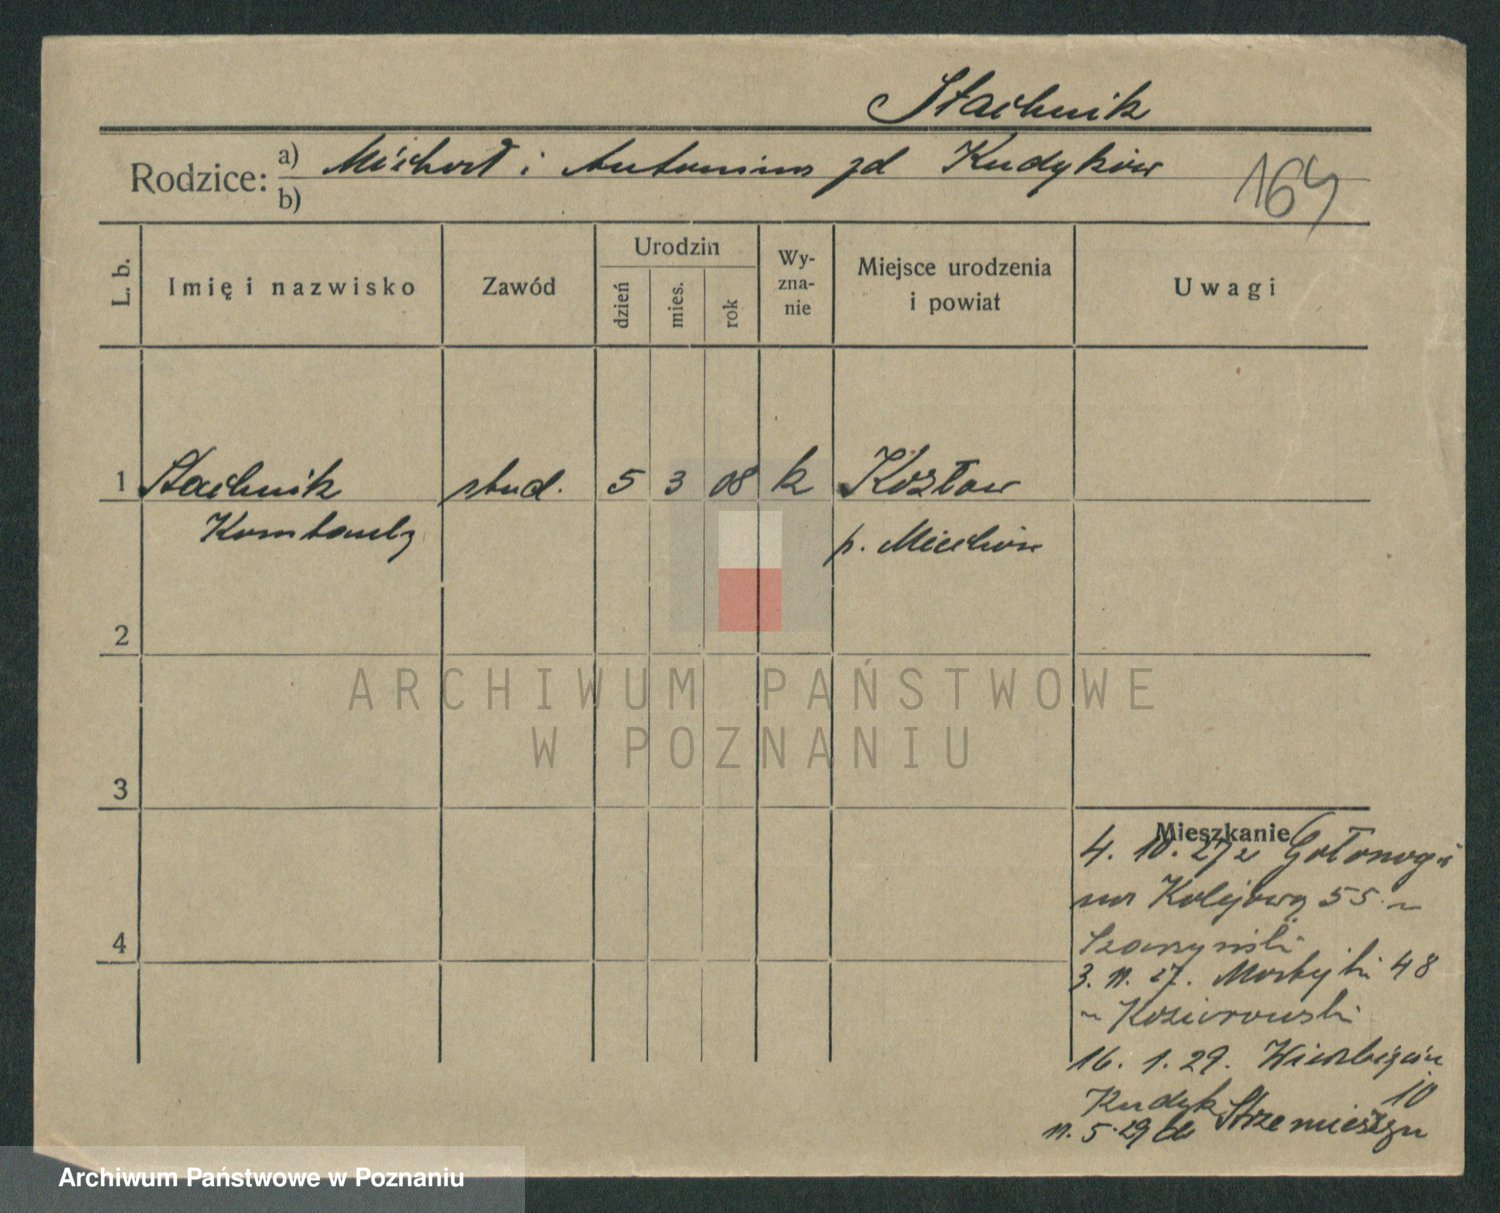 Stachnik
Rodzice: a) Michał i Antonina zd Kudyków
b)
164
L. b.
Imię i nazwisko
Zawód
Urodzin
dzień
mies.
rok
Wy-
zna-
nie
Miejsce urodzenia
i powiat
Uwagi
1 Stachnik stud. 5 3 08 k Kozłow
p. Miechów
2
3
4
ARCHIWUM PAŃSTWOWE
W POZNANIU
Mieszkanie
4. 10. 27 z Gołonogi
na Kolejową 55 ~
3. 11. 27. 48
~ Kozierowski
16. 1. 29.
10
Kudyk
11. 5. 29 do Strzemieszyc
Archiwum Państwowe w Poznaniu